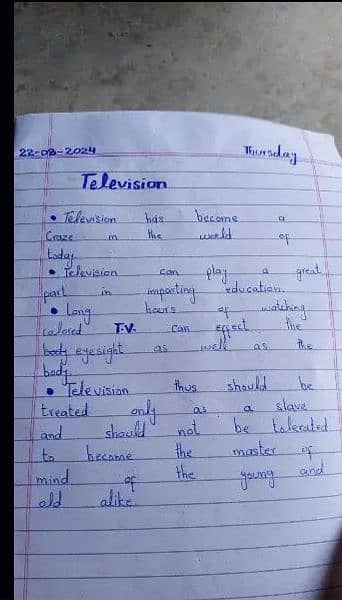 22-08-2024 Thursday
Television
• Television has become a
Craze in the world of
today
• Television can play a great
part in imparting education.
• Long hours of watching
colored T.V. can effect the
body eyesight as well as the
body.
• Television thus should be
treated only as a slave
and should not be tolerated
to become the master of
mind of the young and
old alike.